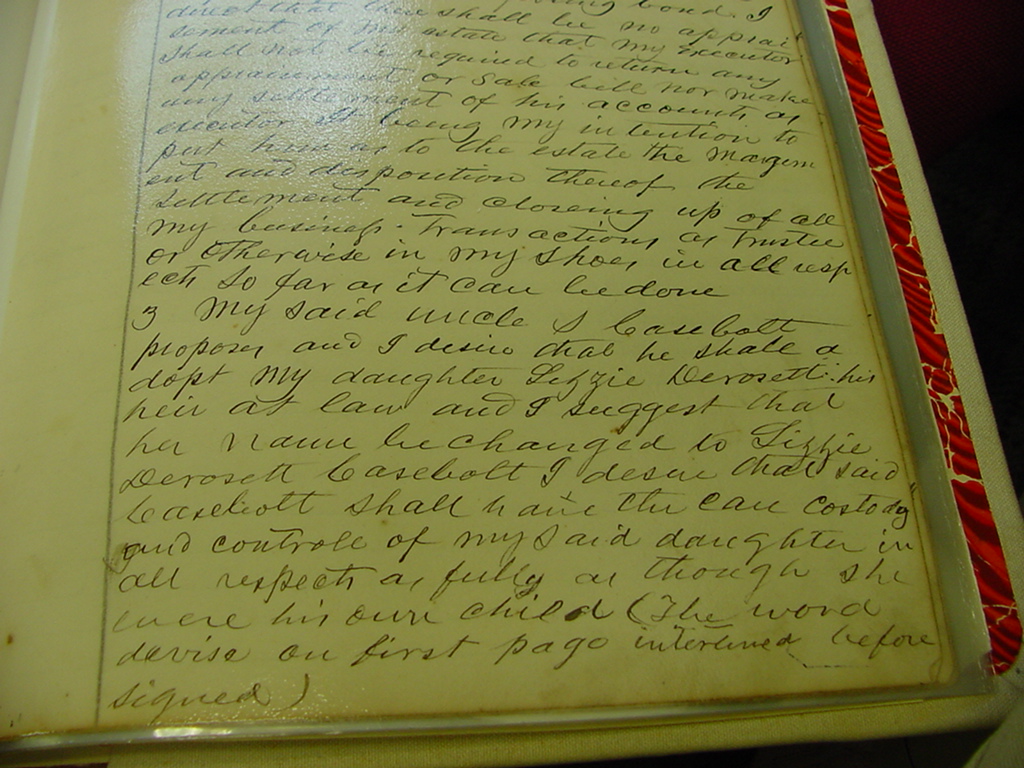 direct that there shall be no apprai
sement of my estate that my executor
shall not be required to return any
appraisement or Sale bill nor make
any settlement of his accounts as
executor it being my intention to
put him as to the estate the Managem
ent and disposition thereof the
settlement and closeing up of all
my business. transactions as trustee
or otherwise in my shoes in all resp
ects so far as it can be done
3 My said uncle S Casebolt
proposes and I desire that he shall a
dopt my daughter Lizzie Derosett his
heir at law and I suggest that
her name be changed to Lizzie
Derosett Casebolt I desire that said
Casebolt shall have the care costody
and controle of my said daughter in
all respects as fully as though she
were his own child (The word
devise on first page interlined before
signed)